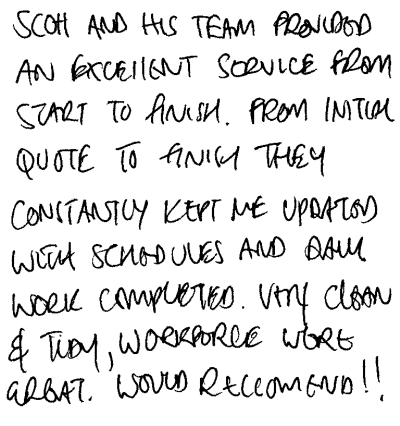 SCOTT AND HIS TEAM PROVIDED
AN EXCELLENT SERVICE FROM
START TO FINISH. FROM INITIAL
QUOTE TO FINISH THEY
CONSTANTLY KEPT ME UPDATED
WITH SCHEDULES AND DAILY
WORK COMPLETED. VERY CLEAN
& TIDY, WORKFORCE WERE
GREAT. WOULD RECCOMEND!!